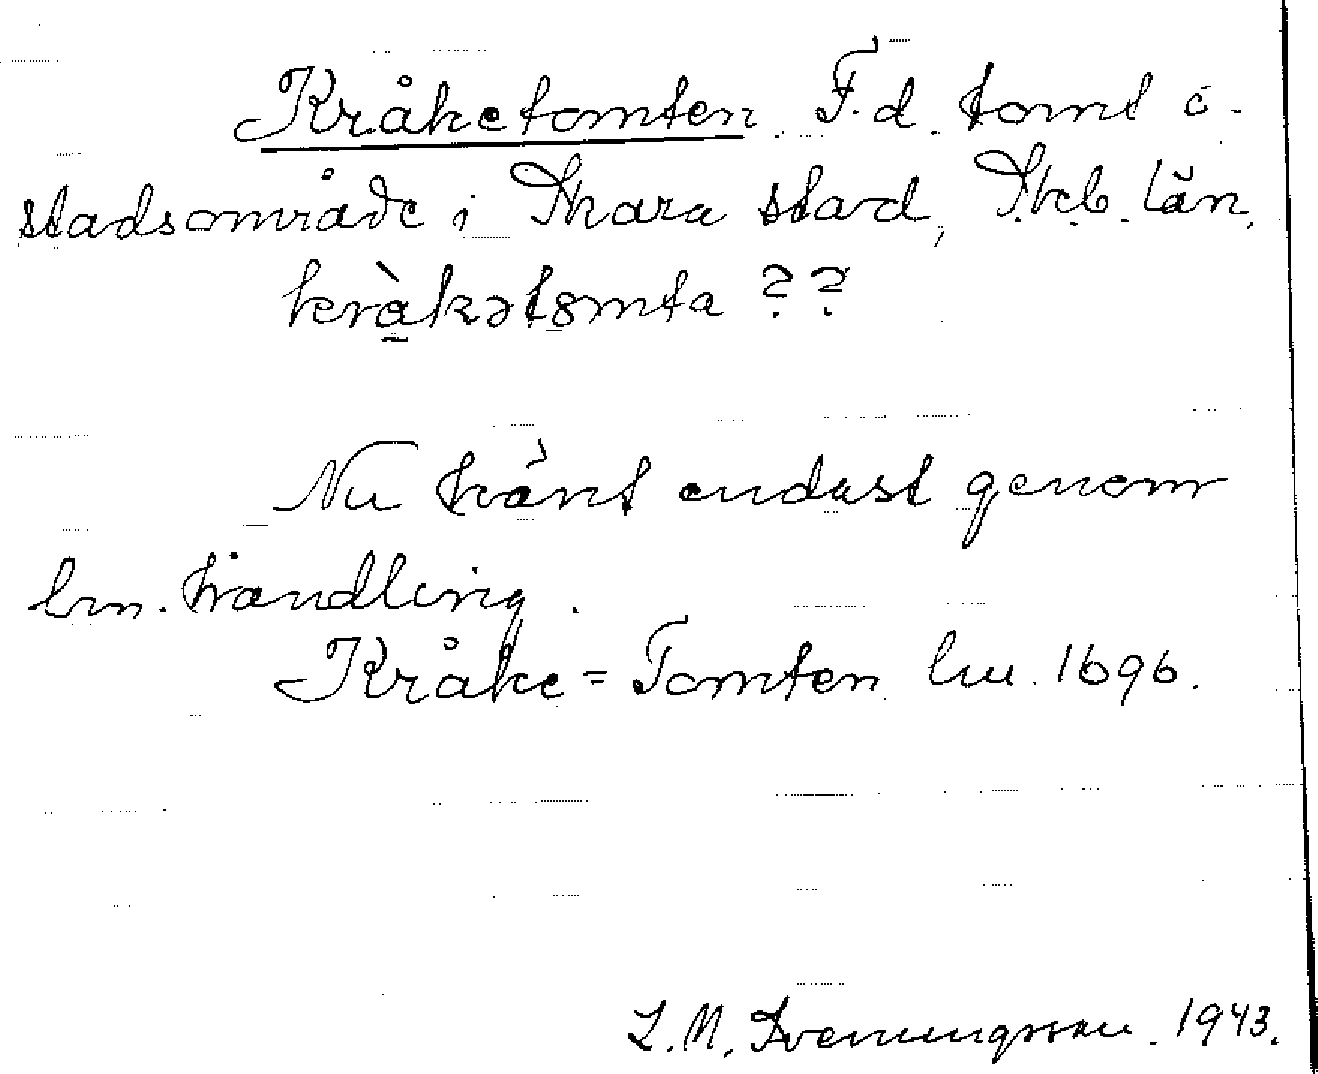 Kråketomten. F.d. tomt i
stadsområde i Skara stad, Skb. län.
kràkətomta ??
Nu känt endast genom
lm. handling.
Kråke = Tomten lm. 1696.
L. M. Svenungsson. 1943.